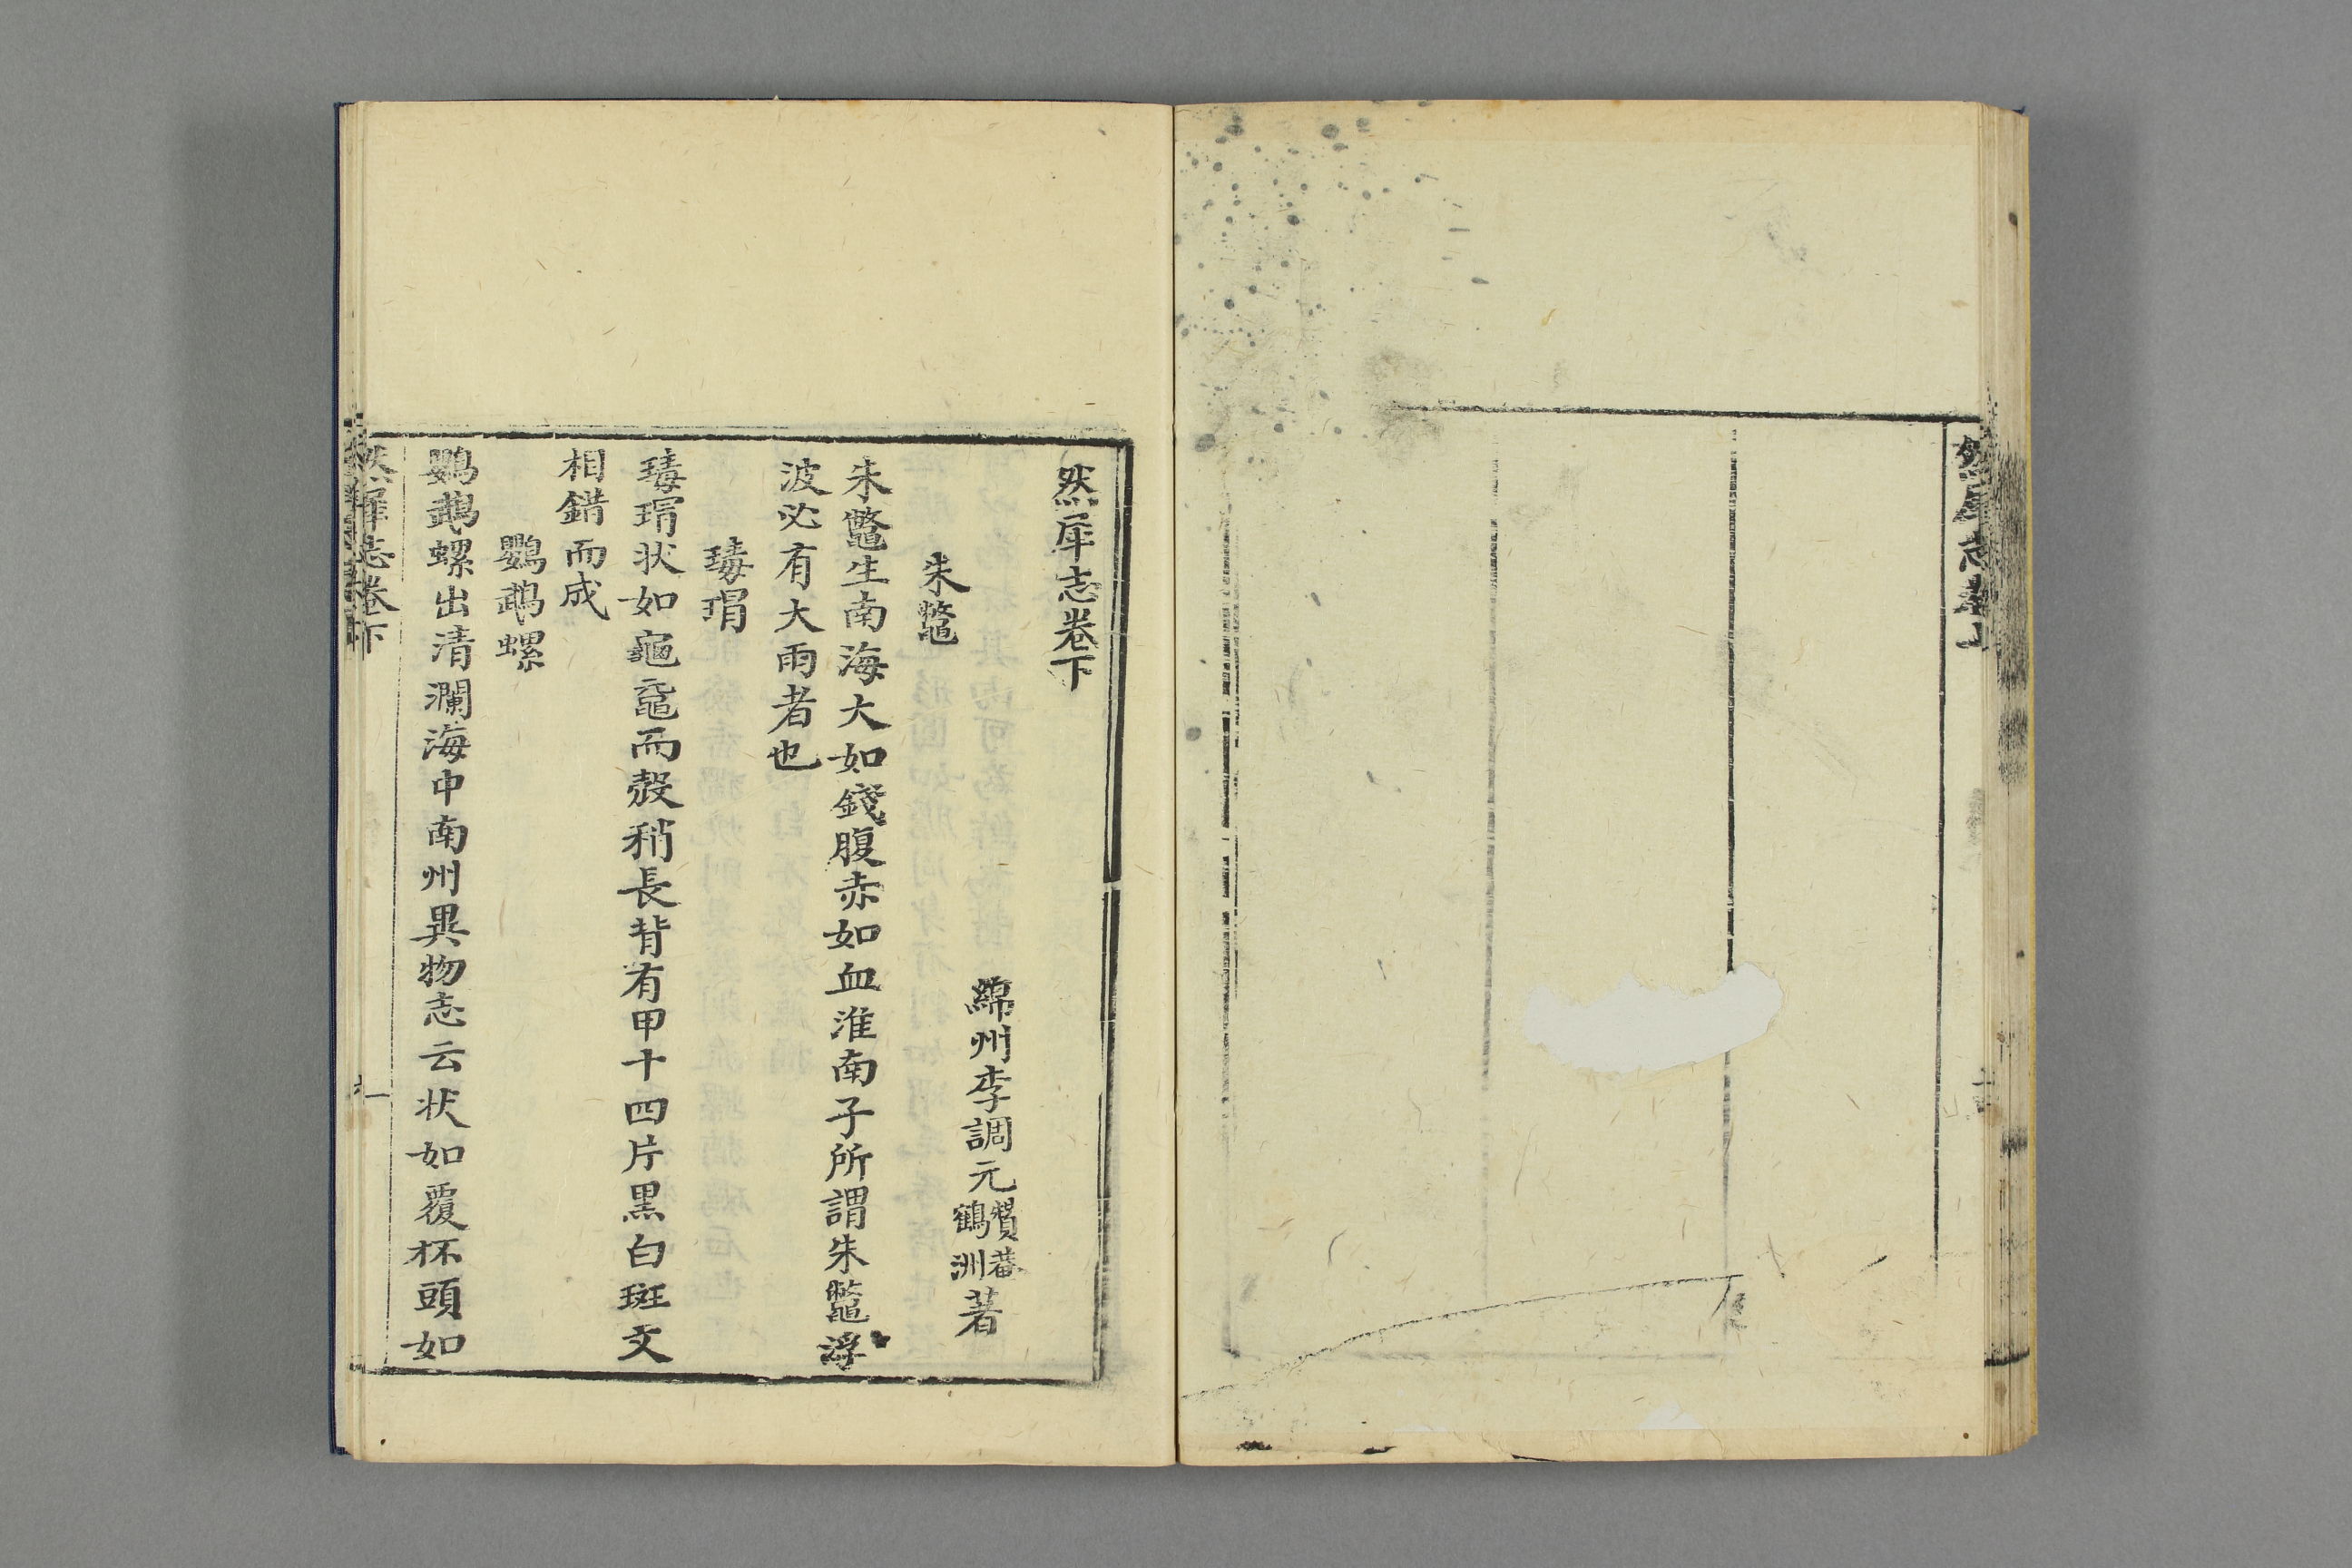 然犀志卷下
綿州李調元贊菴鶴洲著
朱鼈
朱鼈生南海大如錢腹赤如血淮南子所謂朱鼈浮
波必有大雨者也
瑇瑁
瑇瑁状如龜黿而殼稍長背有甲十四片黑白斑文
相錯而成
鸚鵡螺
鸚鵡螺出清瀾海中南州異物志云状如覆杯頭如
然犀志卷下
一